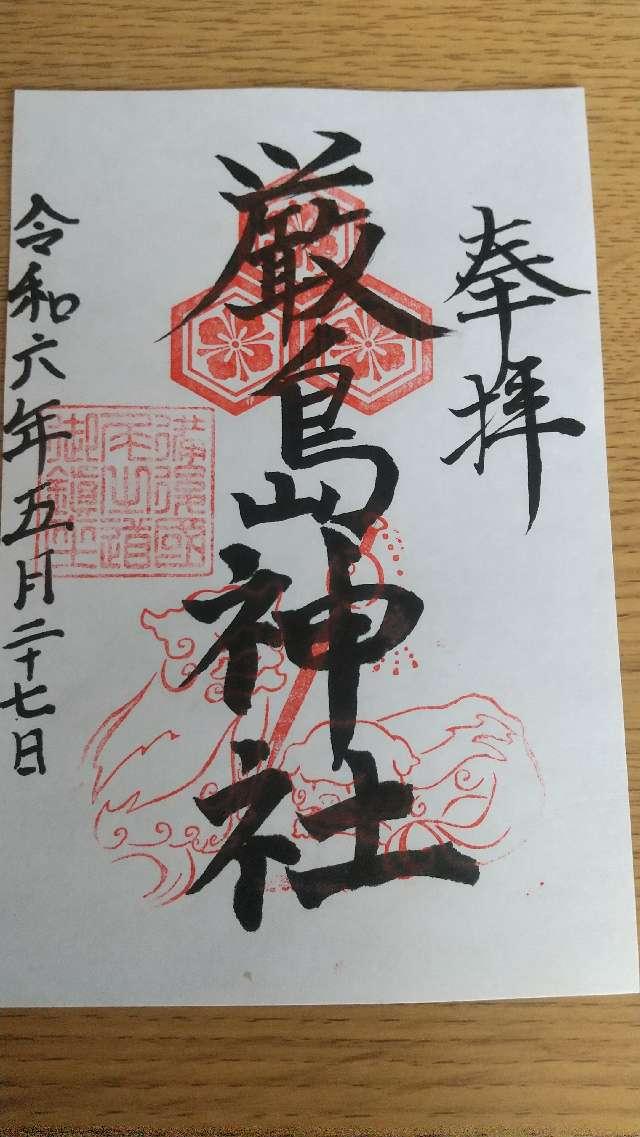 奉拝
厳島神社
令和六年五月二十七日
御鎮座